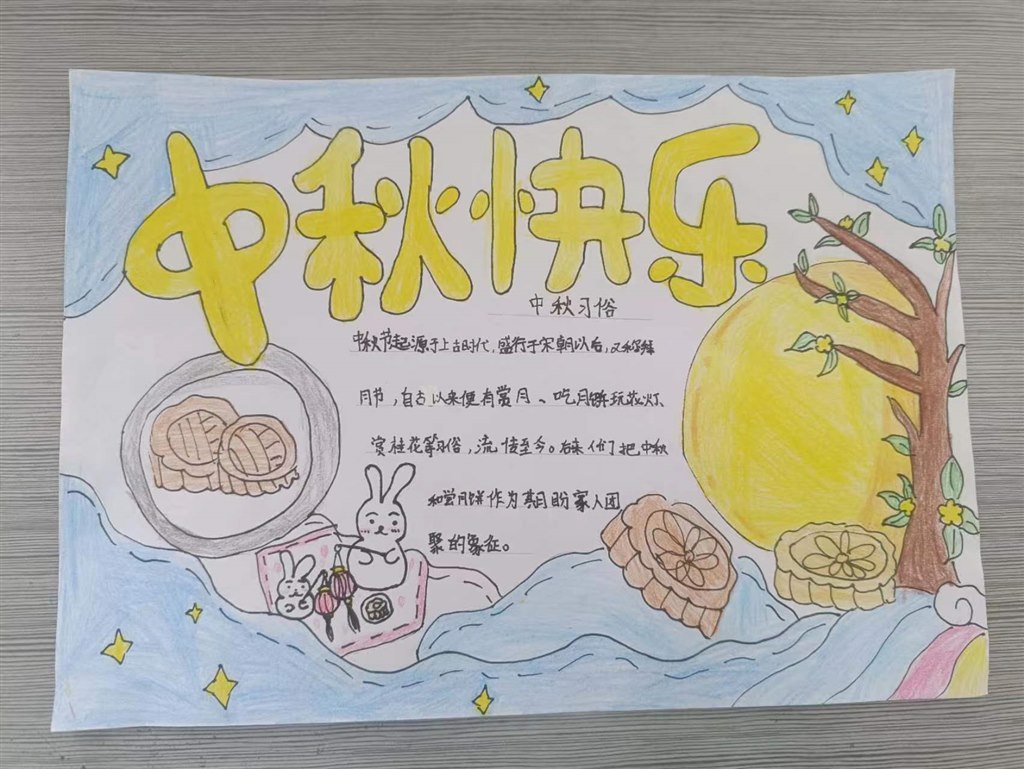 中秋快乐
中秋习俗
中秋节起源于上古时代，盛行于宋朝以后，又称
月节，自古以来便有赏月、吃月饼玩花灯、
赏桂花等习俗，流传至今。后来人们把中秋
和赏月饼作为期盼家人团
聚的象征。